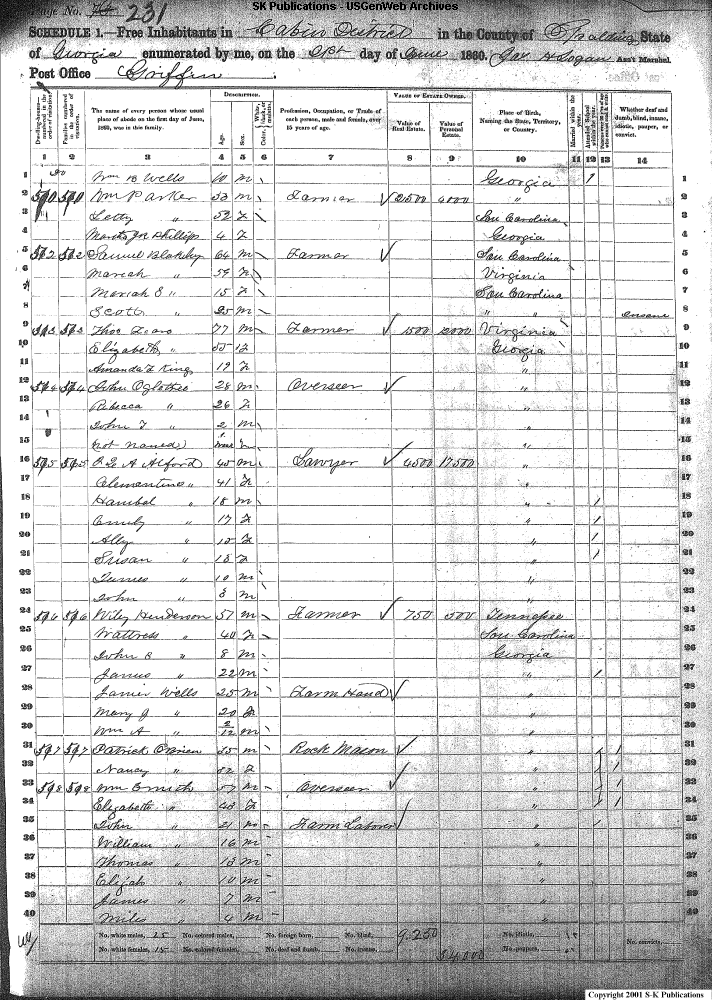 SK Publications - USGenWeb Archives
Page No. 231
SCHEDULE 1.—Free Inhabitants in Cabin District in the County of Spalding State
of Georgia enumerated by me, on the 21st day of June 1860. Jas H Logan Ass't Marshal.
Post Office Griffin
Dwelling-houses—numbered in the order of visitation. Families numbered in the order of visitation. The name of every person whose usual place of abode on the first day of June, 1860, was in this family. DESCRIPTION. Age. Sex. Color, Profession, Occupation, or Trade of each person, male and female, over 15 years of age. VALUE OF ESTATE OWNED. Value of Real Estate. Value of Personal Estate. Place of Birth, Naming the State, Territory, or Country. Married within the year. Attended School within the year. Whether deaf and dumb, blind, insane, idiotic, pauper, or convict.
1 2 3 4 5 6 7 8 9 10 11 12 13 14
1 Wm B Wells 10 m Georgia 1 1
2 Wm Parker 53 m Farmer 4000 " 2
3 Letty " 52 f Sou Carolina 3
4 Phillips 4 f Georgia 4
5 Samuel Blakely 64 m Farmer Sou Carolina 5
6 Mariah " Virginia 6
7 Mariah E " 15 f Sou Carolina 7
8 Scott " 25 m " " insane 8
9 Thos 77 m Farmer 1500 12000 Virginia 9
10 Elizabeth " 55 f Georgia 10
11 Amanda F King 19 f " 11
12 574 574 John Ogletree 28 m Overseer " 12
13 Rebecca " 26 f " 13
14 John T " 2 m " 14
15 not named " 15
16 575 575 Alford 45 m 4500 17500 " 16
17 Clementine " 41 f " 17
18 Hambal " 18 m " 1 18
19 Emily " 17 f " 1 19
20 Ally " 15 f " 1 20
21 Susan " 13 f " 1 21
22 James " 10 m " 22
23 John " 8 m " 23
24 576 576 Wiley Henderson 57 m Farmer 750 500 Tennessee 24
25 Wattress " 40 f Sou Carolina 25
26 John B " 8 m Georgia 26
27 James " 22 m " 1 27
28 James Wells 25 m Farm Hand " 28
29 Mary J " 20 f " 29
30 Wm A " 2/12 m " 30
31 577 577 Patrick O'Brien 35 m Rock Mason " 1 31
32 Nancy " 32 f " 1 32
33 578 578 Wm Smith 57 m Overseer " 1 33
34 Elizabeth " 43 f " 1 34
35 John " 21 m Farm Laborer " 1 35
36 William " 16 m " 36
37 Thomas " 13 m " 37
38 Elijah " 10 m " 38
39 James " 7 m " 39
40 Miles " 4 m " 40
No. white males, 25 No. colored males, No. foreign born, No. blind, 9.250 No. idiotic,
No. white females, 15 No. colored females, No. deaf and dumb, No. insane, 34000 No. paupers, No. convicts,
Copyright 2001 S-K Publications